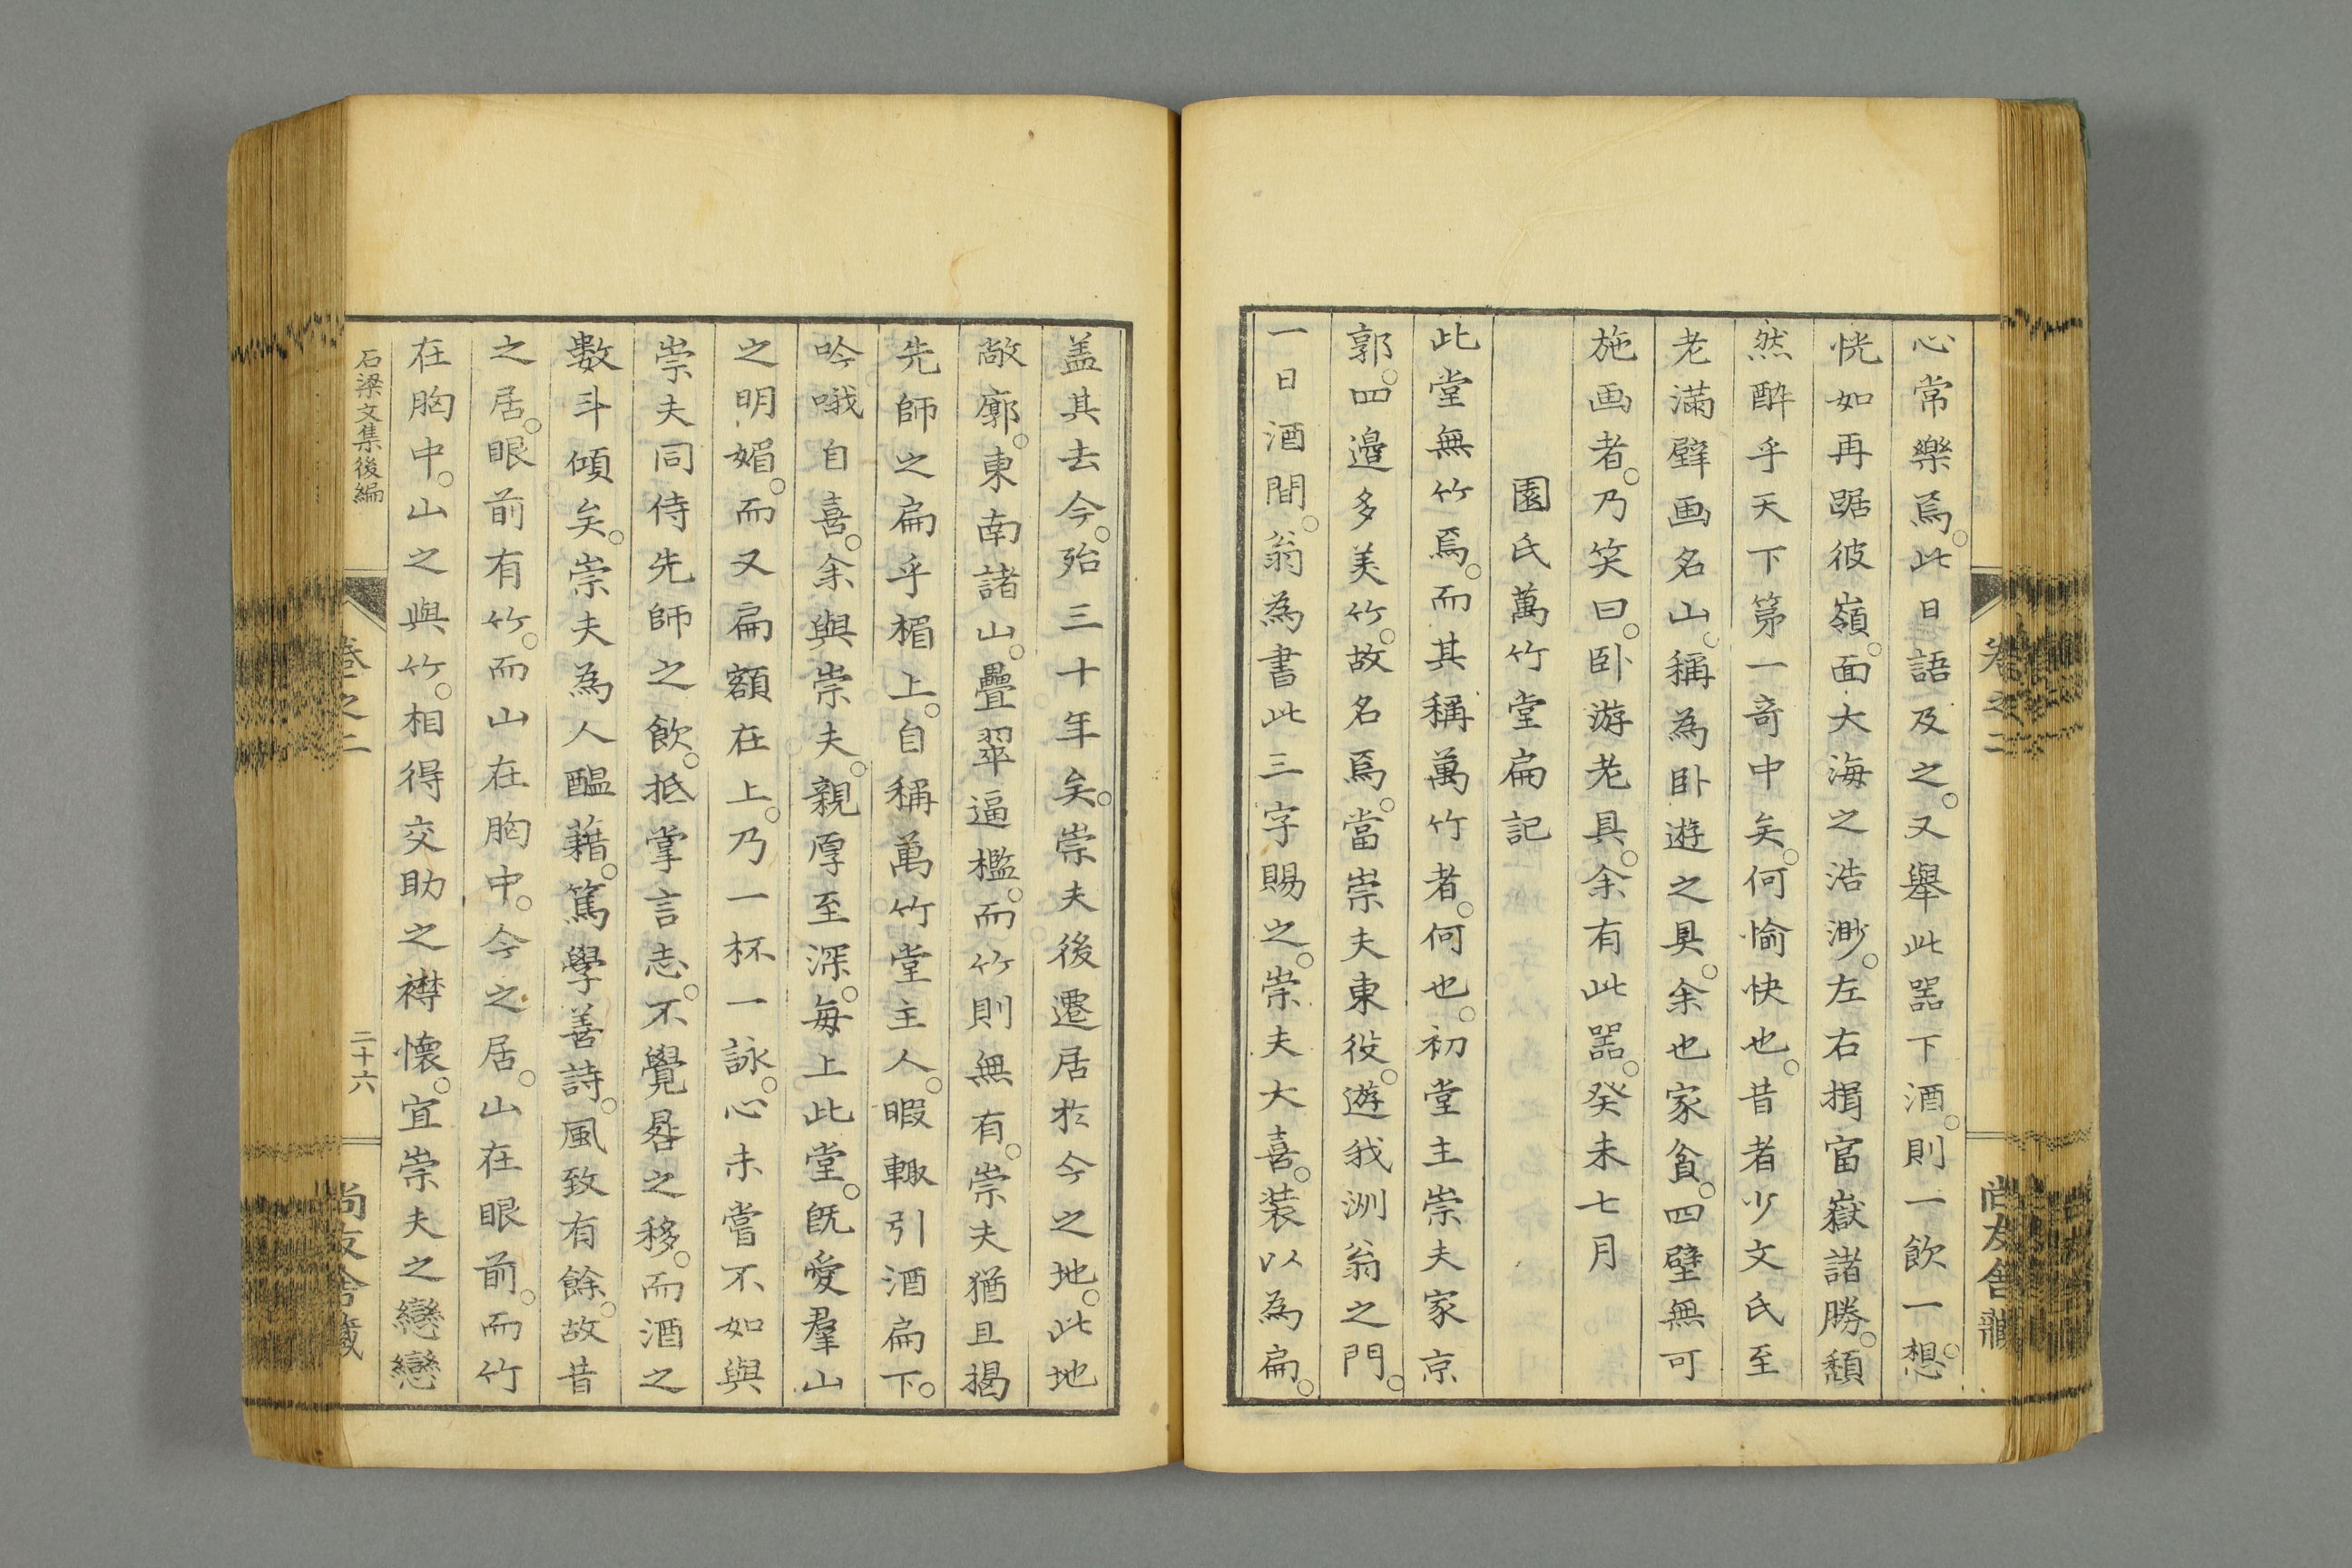 心常樂焉。此日語及之。又舉此噐下酒。則一飲一想。
恍如再踞彼嶺。面大海之浩渺。左右揖富嶽諸勝。頽
然酔乎天下第一奇中矣。何愉快也。昔者少文氏至
老滿壁画名山。稱為卧遊之具。余也家貧。四壁無可
施画者。乃笑曰。卧游老具。余有此噐。癸未七月
園氏萬竹堂扁記
此堂無竹焉。而其稱萬竹者。何也。初堂主崇夫家京
郭。四邉多美竹。故名焉。當崇夫東役。遊我洲翁之門。
一日酒間。翁為書此三字賜之。崇夫大喜。装以為扁。
卷之二
尚友舎藏
盖其去今。殆三十年矣。崇夫後遷居於今之地。此地
敞廓。東南諸山。疊翠逼檻。而竹則無有。崇夫猶且揭
先師之扁乎楣上。自稱萬竹堂主人。暇輙引酒扁下。
吟哦自喜。余與崇夫。親厚至深。毎上此堂。既愛羣山
之明媚。而又扁額在上。乃一杯一詠。心未嘗不如與
崇夫同侍先師之飲。抵掌言志。不覺晷之移。而酒之
數斗傾矣。崇夫為人醖藉。篤學善詩。風致有餘。故昔
之居。眼前有竹。而山在胸中。今之居。山在眼前。而竹
在胸中。山之與竹。相得交助之襟懐。宜崇夫之戀戀
石梁文集後編
卷之二
二十六
尚友舎藏